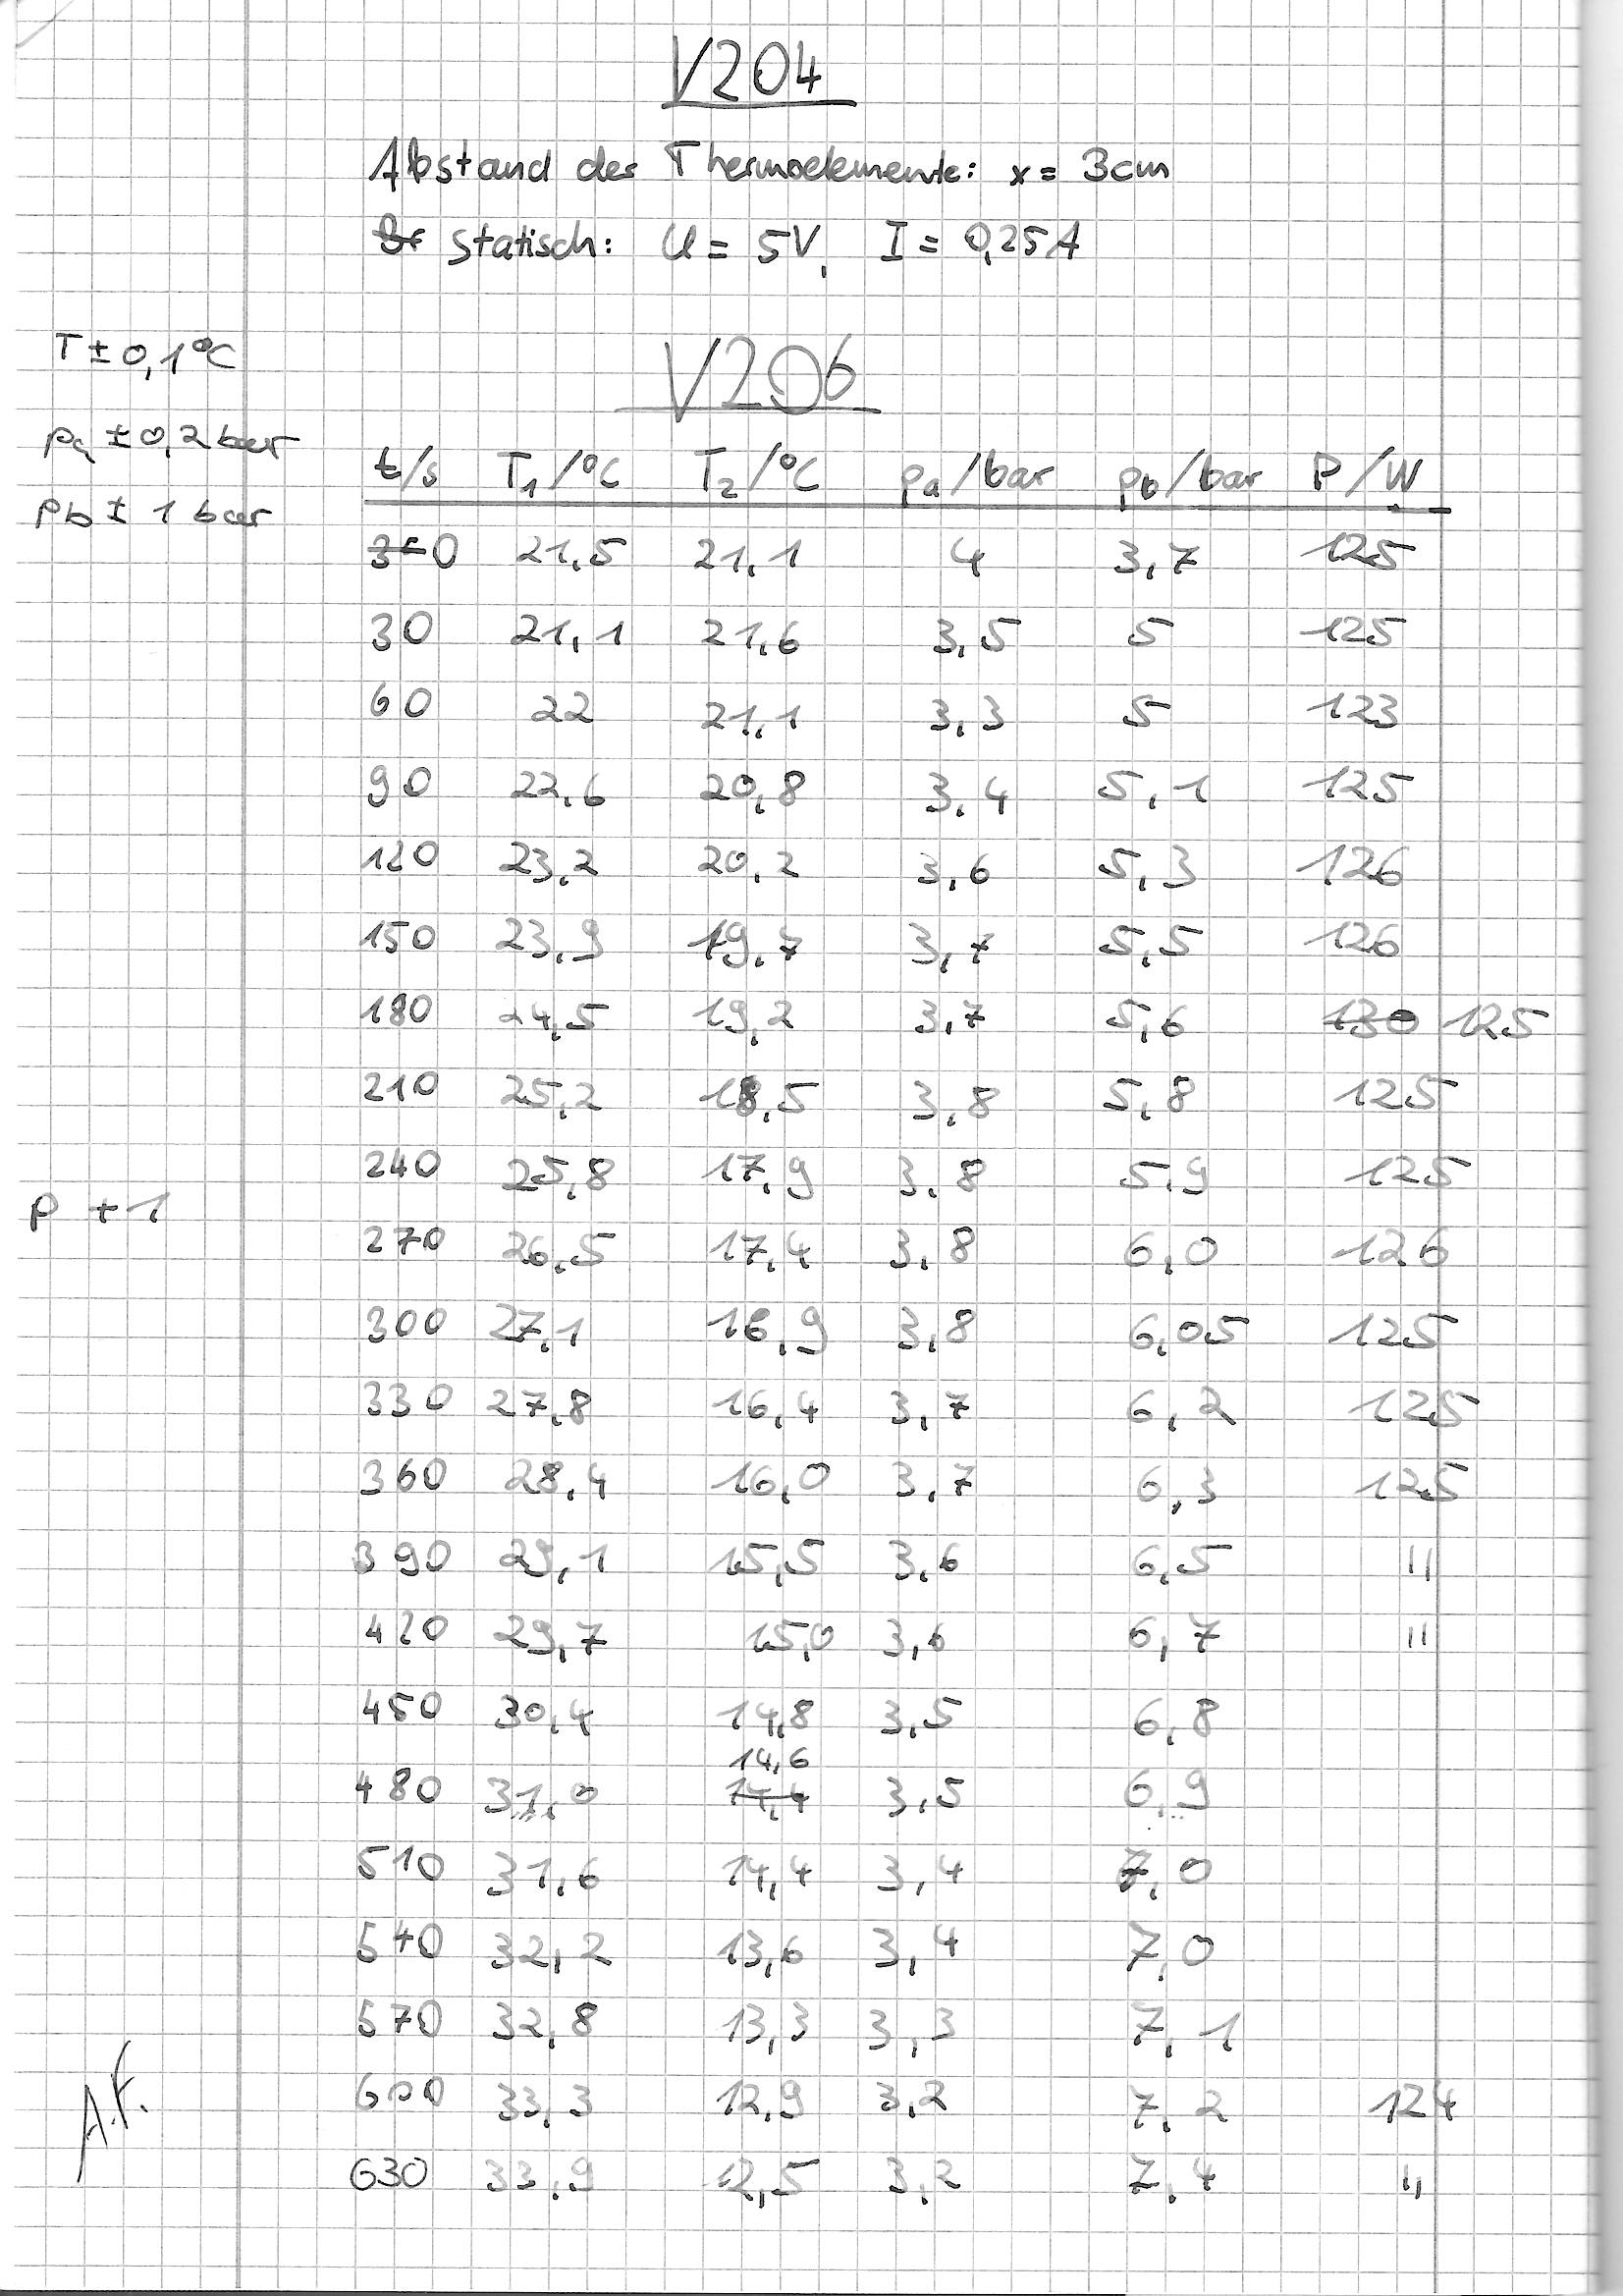 V204
Abstand der Thermoelemente: x = 3cm
statisch: U = 5V, I = 0,25A
T ± 0,1°C
V206
pa ± 0,2 bar
t/s T1/°C T2/°C pa/bar pb/bar P/W
pb ± 1 bar
0 21,5 21,1 4 3,7 125
30 21,1 21,6 3,5 5 125
60 22 21,1 3,3 5 123
90 22,6 20,8 3,4 5,1 125
120 23,2 20,2 3,6 5,3 126
150 23,9 19,7 3,7 5,5 126
180 24,5 19,2 3,7 5,6 130 125
210 25,2 18,5 3,8 5,8 125
240 25,8 17,9 3,8 5,9 125
P + 1
270 26,5 17,4 3,8 6,0 126
300 27,1 16,9 3,8 6,05 125
330 27,8 16,4 3,7 6,2 125
360 28,4 16,0 3,7 6,3 125
390 29,1 15,5 3,6 6,5 "
420 29,7 15,0 3,6 6,7 "
450 30,4 14,8 3,5 6,8
14,6
480 31,0 14,4 3,5 6,9
510 31,6 14,4 3,4 7,0
540 32,2 13,6 3,4 7,0
570 32,8 13,3 3,3 7,1
600 33,3 12,9 3,2 7,2 124
A.F.
630 33,9 12,5 3,2 7,4 "